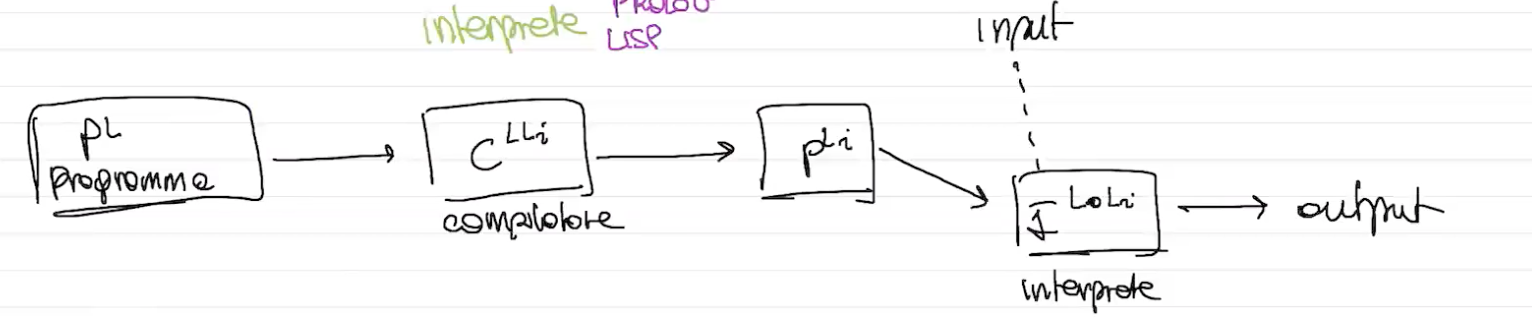 interprete PROLOG
LISP
input
pL
programma
C^LLi
compilatore
pLi
I^LoLi
interprete
output